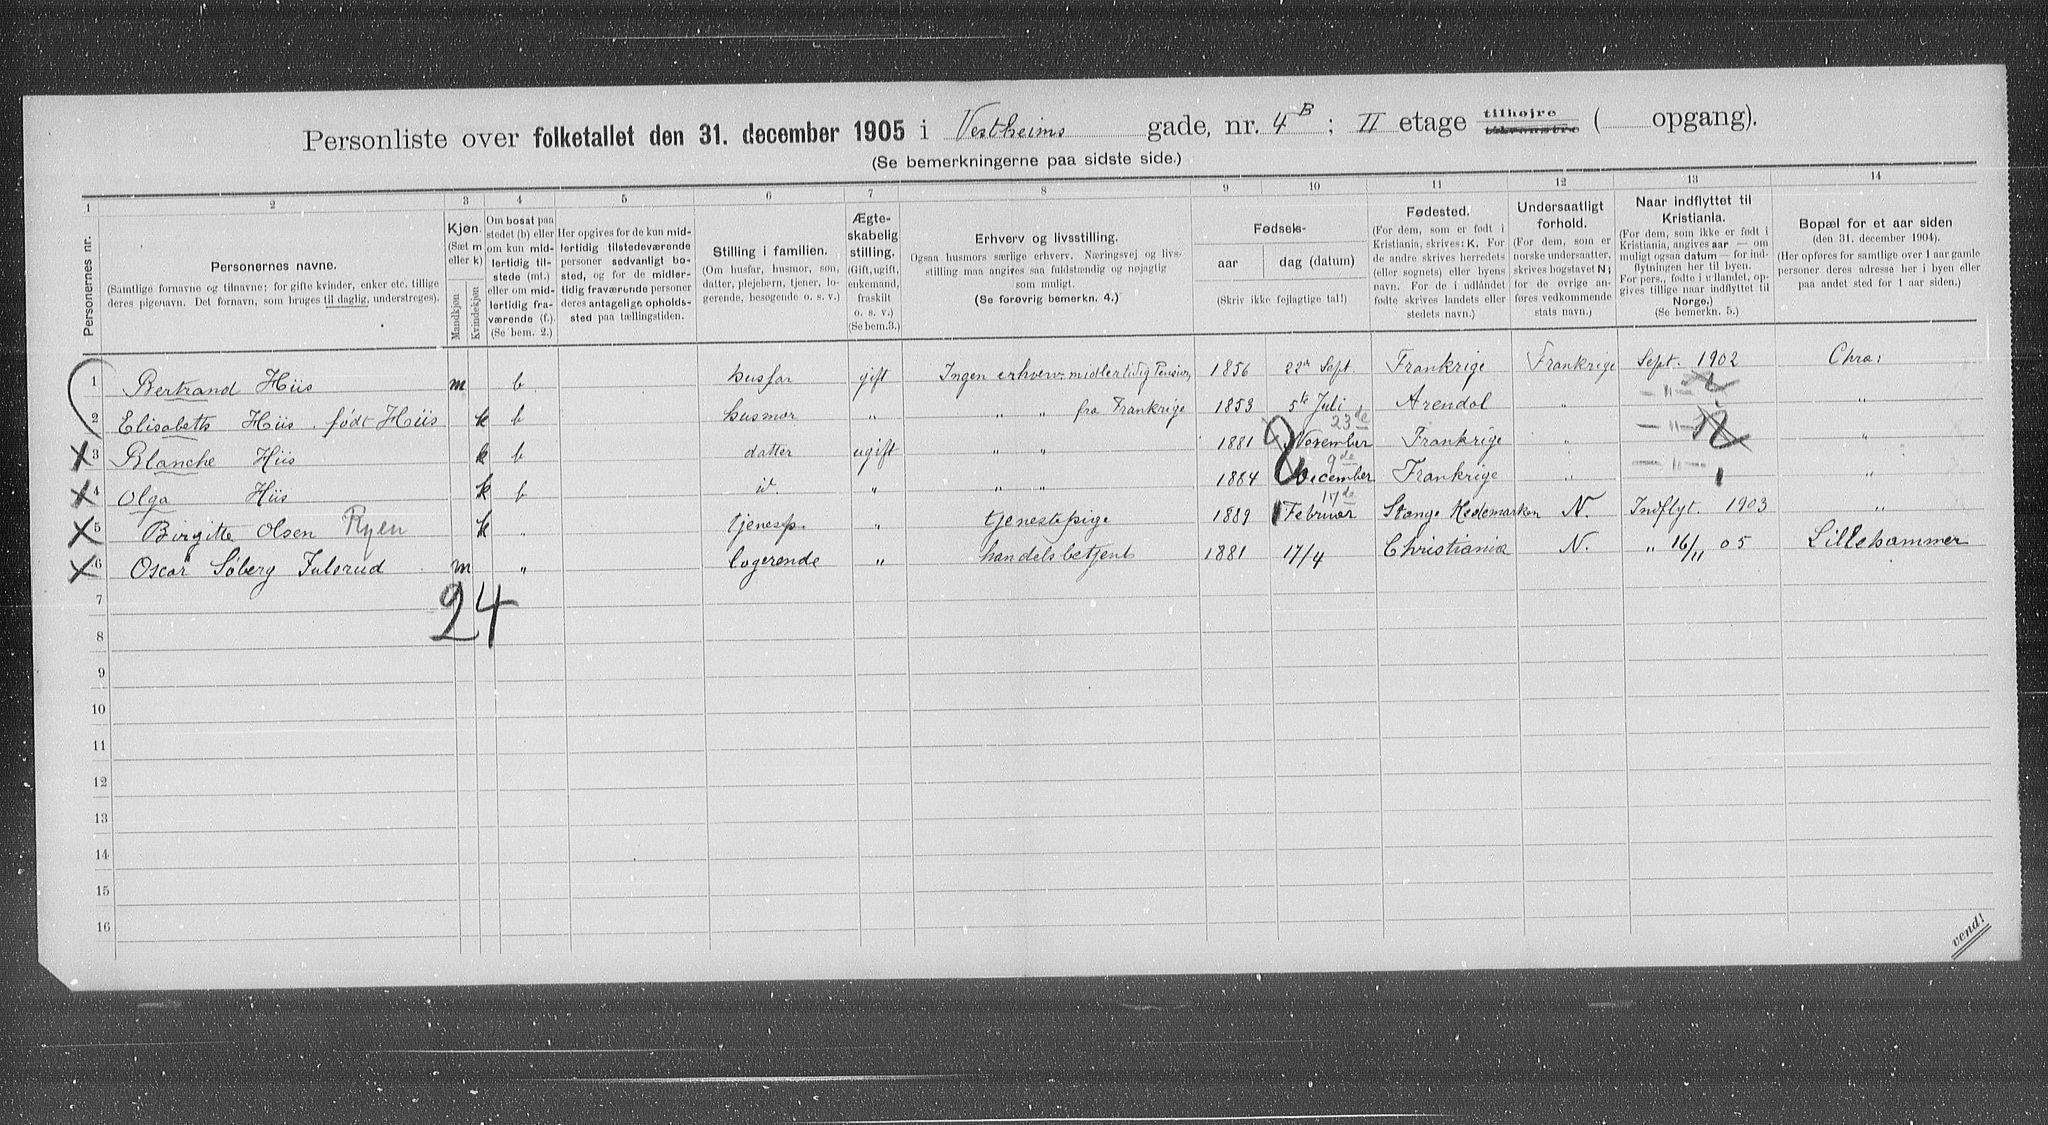 Personliste over folketallet den 31. december 1905 i Vestheims gade, nr. 4 B ; II etage tilhøjre ( opgang).
(Se bemerkningerne paa sidste side.)
1 2 3 4 5 6 7 8 9 10 11 12 13 14
Personernes nr.
Personernes navne.
(Samtlige fornavne og tilnavne; for gifte kvinder, enker etc. tillige
deres pigenavn. Det fornavn, som bruges til daglig, understreges).
Kjøn.
(Sæt m
eller k)
Mandkjøn
Kvindekjøn
Om bosat paa
stedet (b) eller
om kun mid-
lertidig til-
stede (mt.)
eller om mid-
lertidig fra-
værende (f.).
(Se bem. 2.)
Her opgives for de kun mid-
lertidig tilstedeværende
personer sedvanlig bo-
sted, og for de midler-
tidig fraværende personer
deres antagelige opholds-
sted paa tællingstiden.
Stilling i familien.
(Om husfar, husmor, søn,
datter, plejebørn, tjener, lo-
gerende, besøgende o. s. v.)
Ægte-
skabelig
stilling.
(Gift, ugift,
enkemand,
fraskilt
o. s. v.)
(Se bem.3.)
Erhverv og livsstilling.
Ogsaa husmors særlige erhverv. Næringsvej og livs-
stilling maa angives saa fuldstændig og nøjagtig
som muligt.
(Se forøvrig bemerkn. 4.)
Fødsels-
aar
dag (datum)
(Skriv ikke fejlagtige tal!)
Fødested.
(For dem, som er født i
Kristiania, skrives: K. For
de andre skrives herredets
(eller sognets) eller byens
navn. For de i udlandet
fødte skrives landets eller
stedets navn.)
Undersaatligt
forhold.
(For dem, som er
norske undersaatter,
skrives bogstavet N;
for de øvrige an-
føres vedkommende
stats navn.)
Naar indflyttet til
Kristiania.
(For dem, som ikke er født i
Kristiania, angives aar — om
muligt ogsaa datum — for ind-
flytningen her til byen.
For pers., fødte i udlandet, op-
gives tillige naar indflyttet til
Norge.)
(Se bemerkn. 5.)
Bopæl for et aar siden
(den 31. december 1904).
(Her opføres for samtlige over 1 aar gamle
personer deres adresse her i byen eller
paa andet sted for 1 aar siden.)
1 Bertrand Hiis m b husfar gift Ingen erhverv midlertidig Pension 1856 22de Sept Frankrige Frankrige Sept. 1902 Chra:
2 Elisabeth Hiis født Hiis k b husmor " " " fra Frankrige 1853 5te Juli Arendal " — " — "
3 Blanche Hiis k b datter ugift " " 1881 23de November Frankrige " — " — "
4 Olga Hiis k b id. " " " 1884 9de December Frankrige " — " — "
5 Birgitte Olsen Ryen k " tjenesp. " tjenestepige 1889 17de Februar Stange Hedemarken N. Indflyt. 1903 "
6 Oscar Søberg Julsrud m " logerende " handelsbetjent 1881 17/4 Christiania N. " 16/11 05 Lillehammer
24
7
8
9
10
11
12
13
14
15
16
vend!